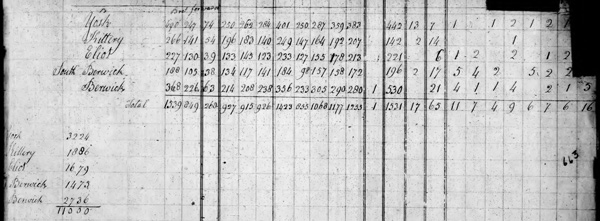 Brot forward
York 640 247 74 250 264 284 401 250 287 359 383 442 13 7 1 1 2 1 2 1
Kittery 266 141 54 196 183 140 249 147 164 192 207 142 2 14 1
Eliot 227 130 39 133 143 123 233 127 155 178 213 221 6 1 2 2 1 2
South Berwick 108 105 38 134 117 141 184 98 157 158 172 196 2 17 5 4 2 5 2 2
Berwick 348 226 63 214 208 238 356 233 305 290 280 1 530 21 4 1 1 4 2 1 5
Total 1539 849 268 927 915 926 1423 855 1068 1177 1255 1 1531 17 65 11 7 4 9 6 7 6 16
York 3224
Kittery 1886
Eliot 1679
Berwick 1473
Berwick 2736
663